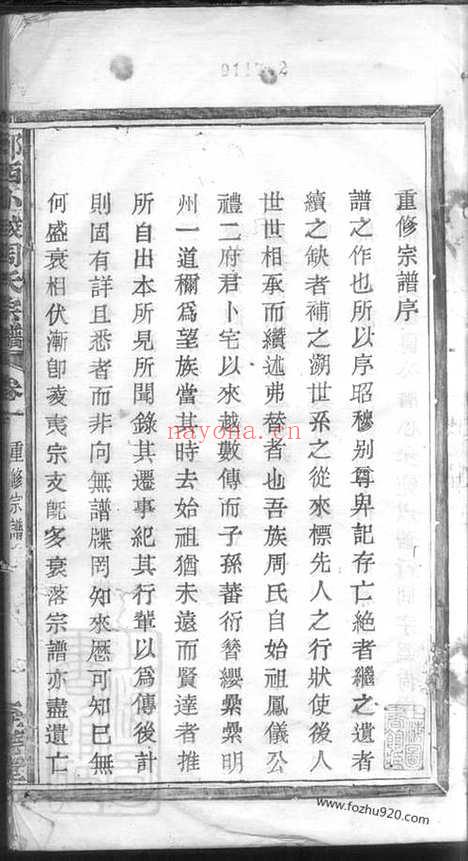 重修宗譜序
譜之作也所以序昭穆别尊卑記存亡絕者繼之遺者
續之缺者補之溯世系之從來標先人之行狀使後人
世世相承而纘述弗替者也吾族周氏自始祖鳳儀公
禮二府君卜宅以來越數傳而子孫蕃衍簪纓纍纍明
州一道稱爲望族當其時去始祖猶未遠而賢達者推
所自出本所見所聞錄其遷事紀其行輩以爲傳後計
則固有詳且悉者而非向無譜牒罔知來歷可知已無
何盛衰相伏漸卽菱夷宗支旣多衰落宗譜亦盡遺亡
周氏宗譜
卷一
重修宗譜
nayona.cn
www.fozhu920.com